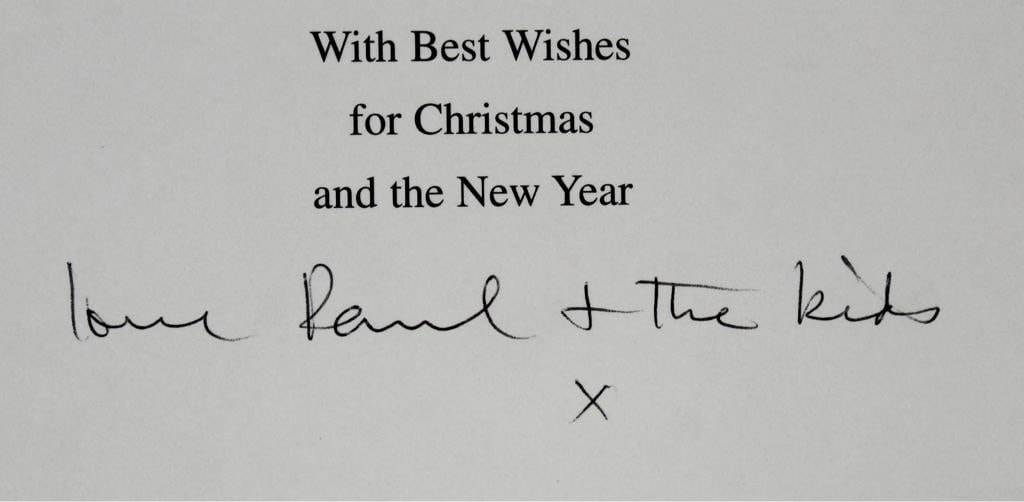 With Best Wishes
for Christmas
and the New Year
love Paul + the kids
x